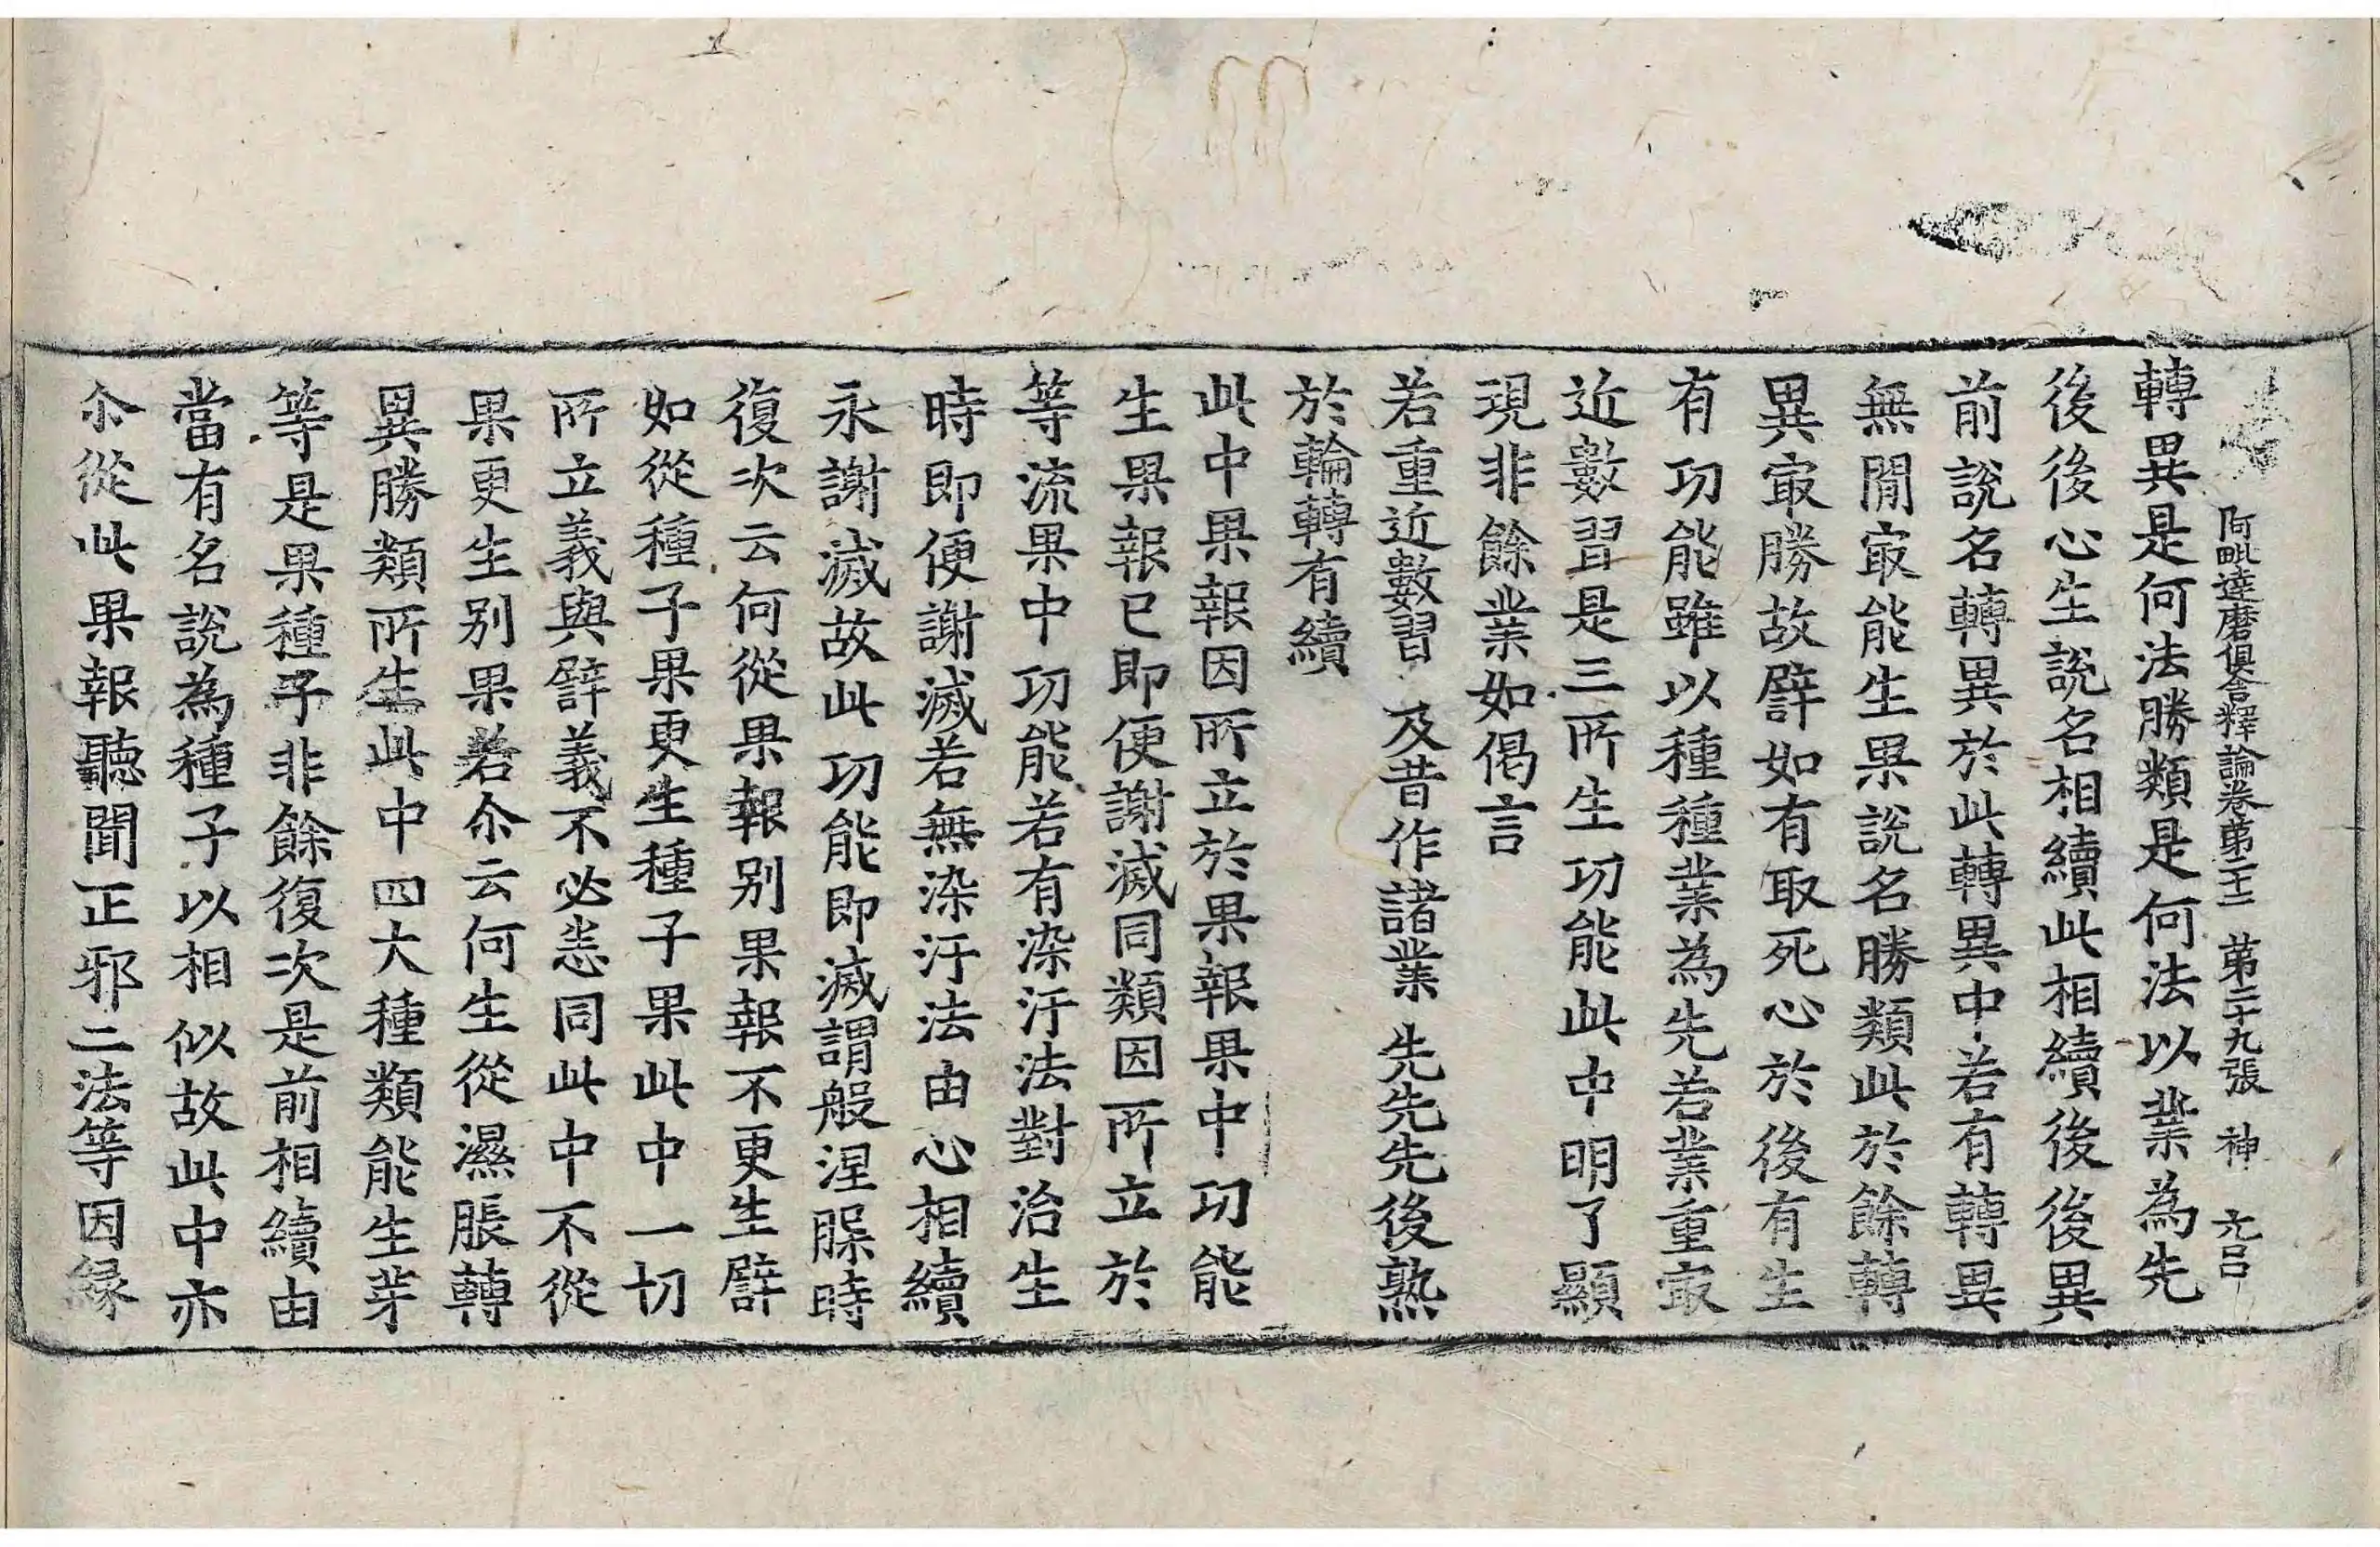 阿毗達磨俱舍釋論卷第二十二 第二十九張 神
轉異是何法勝類是何法以業為先
後後心生說名相續此相續後後異
前說名轉異於此轉異中若有轉異
無間㝡能生果說名勝類此於餘轉
異㝡勝故譬如有取死心於後有生
有功能雖以種種業為先若業重㝡
近數習是三所生功能此中明了顯
現非餘業如偈言
若重近數習 及昔作諸業 先先先後熟
於輪轉有續
此中果報因所立於果報果中功能
生果報已即便謝滅同類因所立於
等流果中功能若有染汙法對治生
時即便謝滅若無染汙法由心相續
永謝滅故此功能即滅謂般涅槃時
復次云何從果報別果報不更生譬
如從種子果更生種子果此中一切
所立義與譬義不必悉同此中不從
果更生別果若尒云何生從濕脹轉
異勝類所生此中四大種類能生芽
等是果種子非餘復次是前相續由
當有名說為種子以相似故此中亦
尒從此果報聽聞正邪二法等因緣